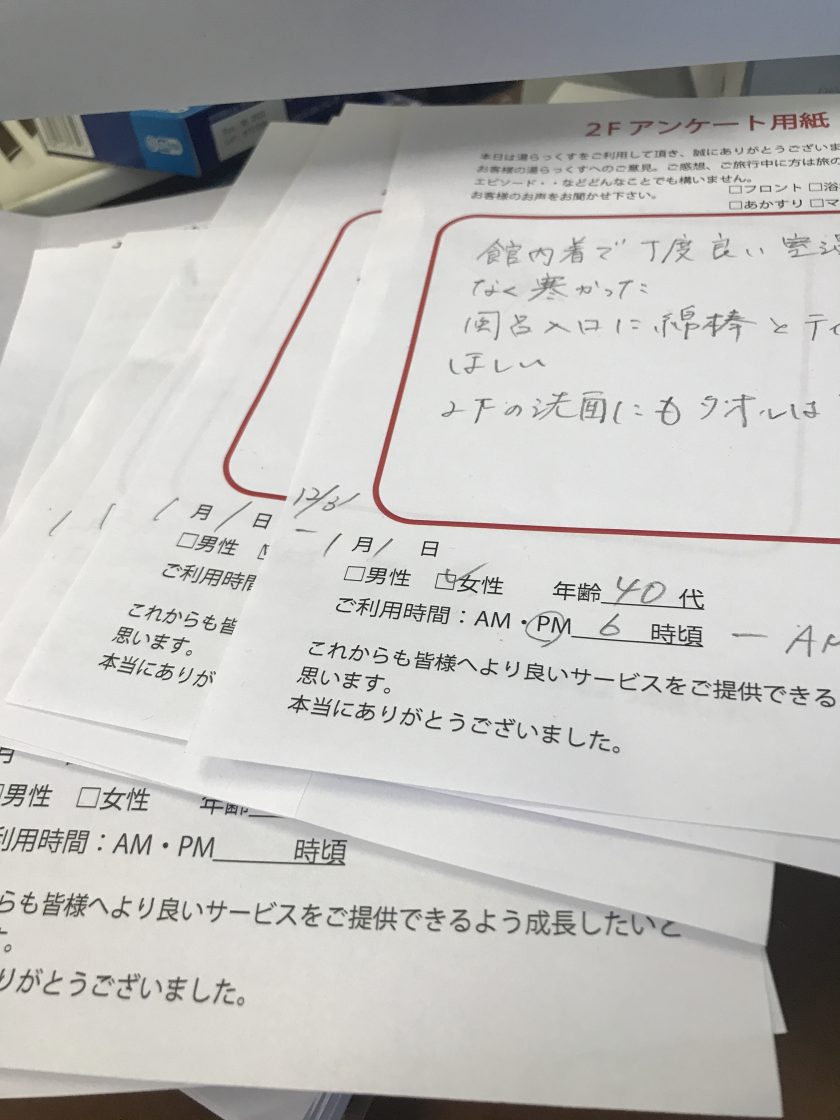 2Fアンケート用紙
本日は湯らっくすをご利用して頂き、誠にありがとうございま
お客様の湯らっくすへのご意見。ご感想、ご旅行中に方は旅の
エピソード・・などどんなことでも構いません。
お客様のお声をお聞かせ下さい。
□フロント □浴
□あかすり □マ
館内着で丁度良い室温
なく寒かった
風呂入口に綿棒とティ
ほしい
2Fの洗面にもタオルは
12/31
ー1月1日
□男性 □女性 年齢 40 代
ご利用時間：AM・PM 6 時頃 ー AM
これからも皆様へより良いサービスをご提供できる
思います。
本当にありがとうございました。
1月1日
□男性
ご利用時間
これからも皆
思います。
本当にありが
月
男性 □女性 年齢
利用時間：AM・PM 時頃
らも皆様へより良いサービスをご提供できるよう成長したいと
た。
りがとうございました。